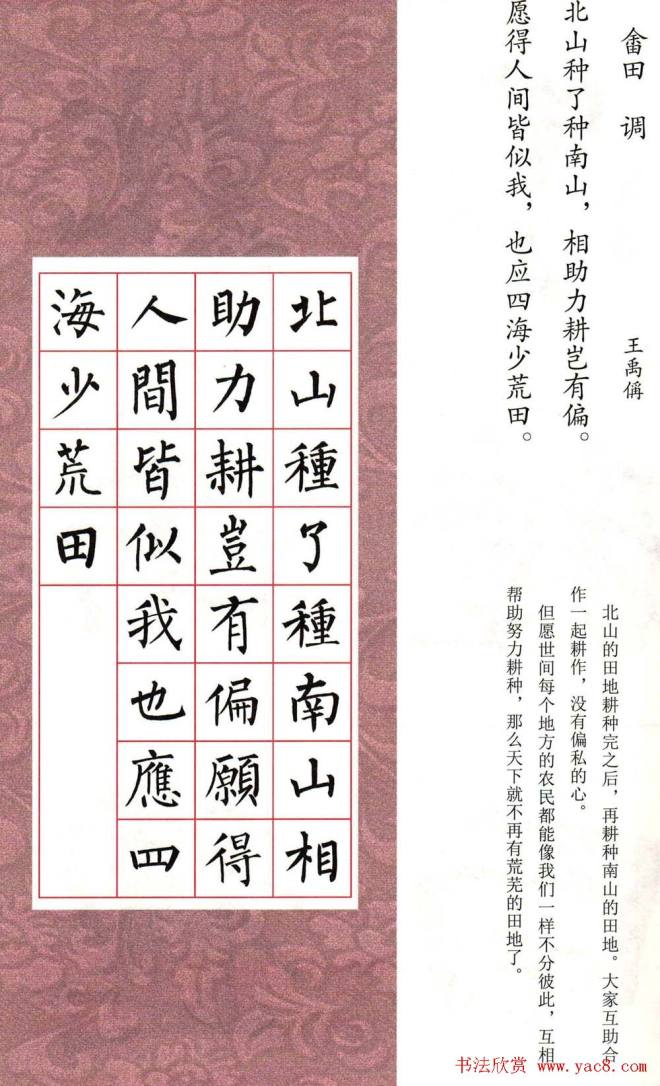 畲田调
王禹偁
北山种了种南山，相助力耕岂有偏。
愿得人间皆似我，也应四海少荒田。
北山的田地耕种完之后，再耕种南山的田地。大家互助合
作一起耕作，没有偏私的心。
但愿世间每个地方的农民都能像我们一样不分彼此，互相
帮助努力耕种，那么天下就不再有荒芜的田地了。
北山種了種南山相
助力耕豈有偏願得
人間皆似我也應四
海少荒田
书法欣赏 www.yac8.com